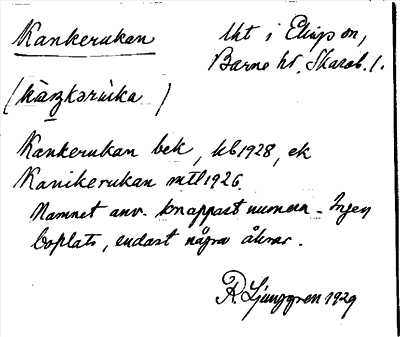 Kankerukan
Uht i Elings sn,
Barne hd, Skarab. l.
(kàŋkərùka)
Kankerukan bek, kb 1928, ek
Kanikerukan mtl 1926.
Namnet anv. knappast numera - Ingen
boplats, endast några åkrar.
R. Ljunggren 1929